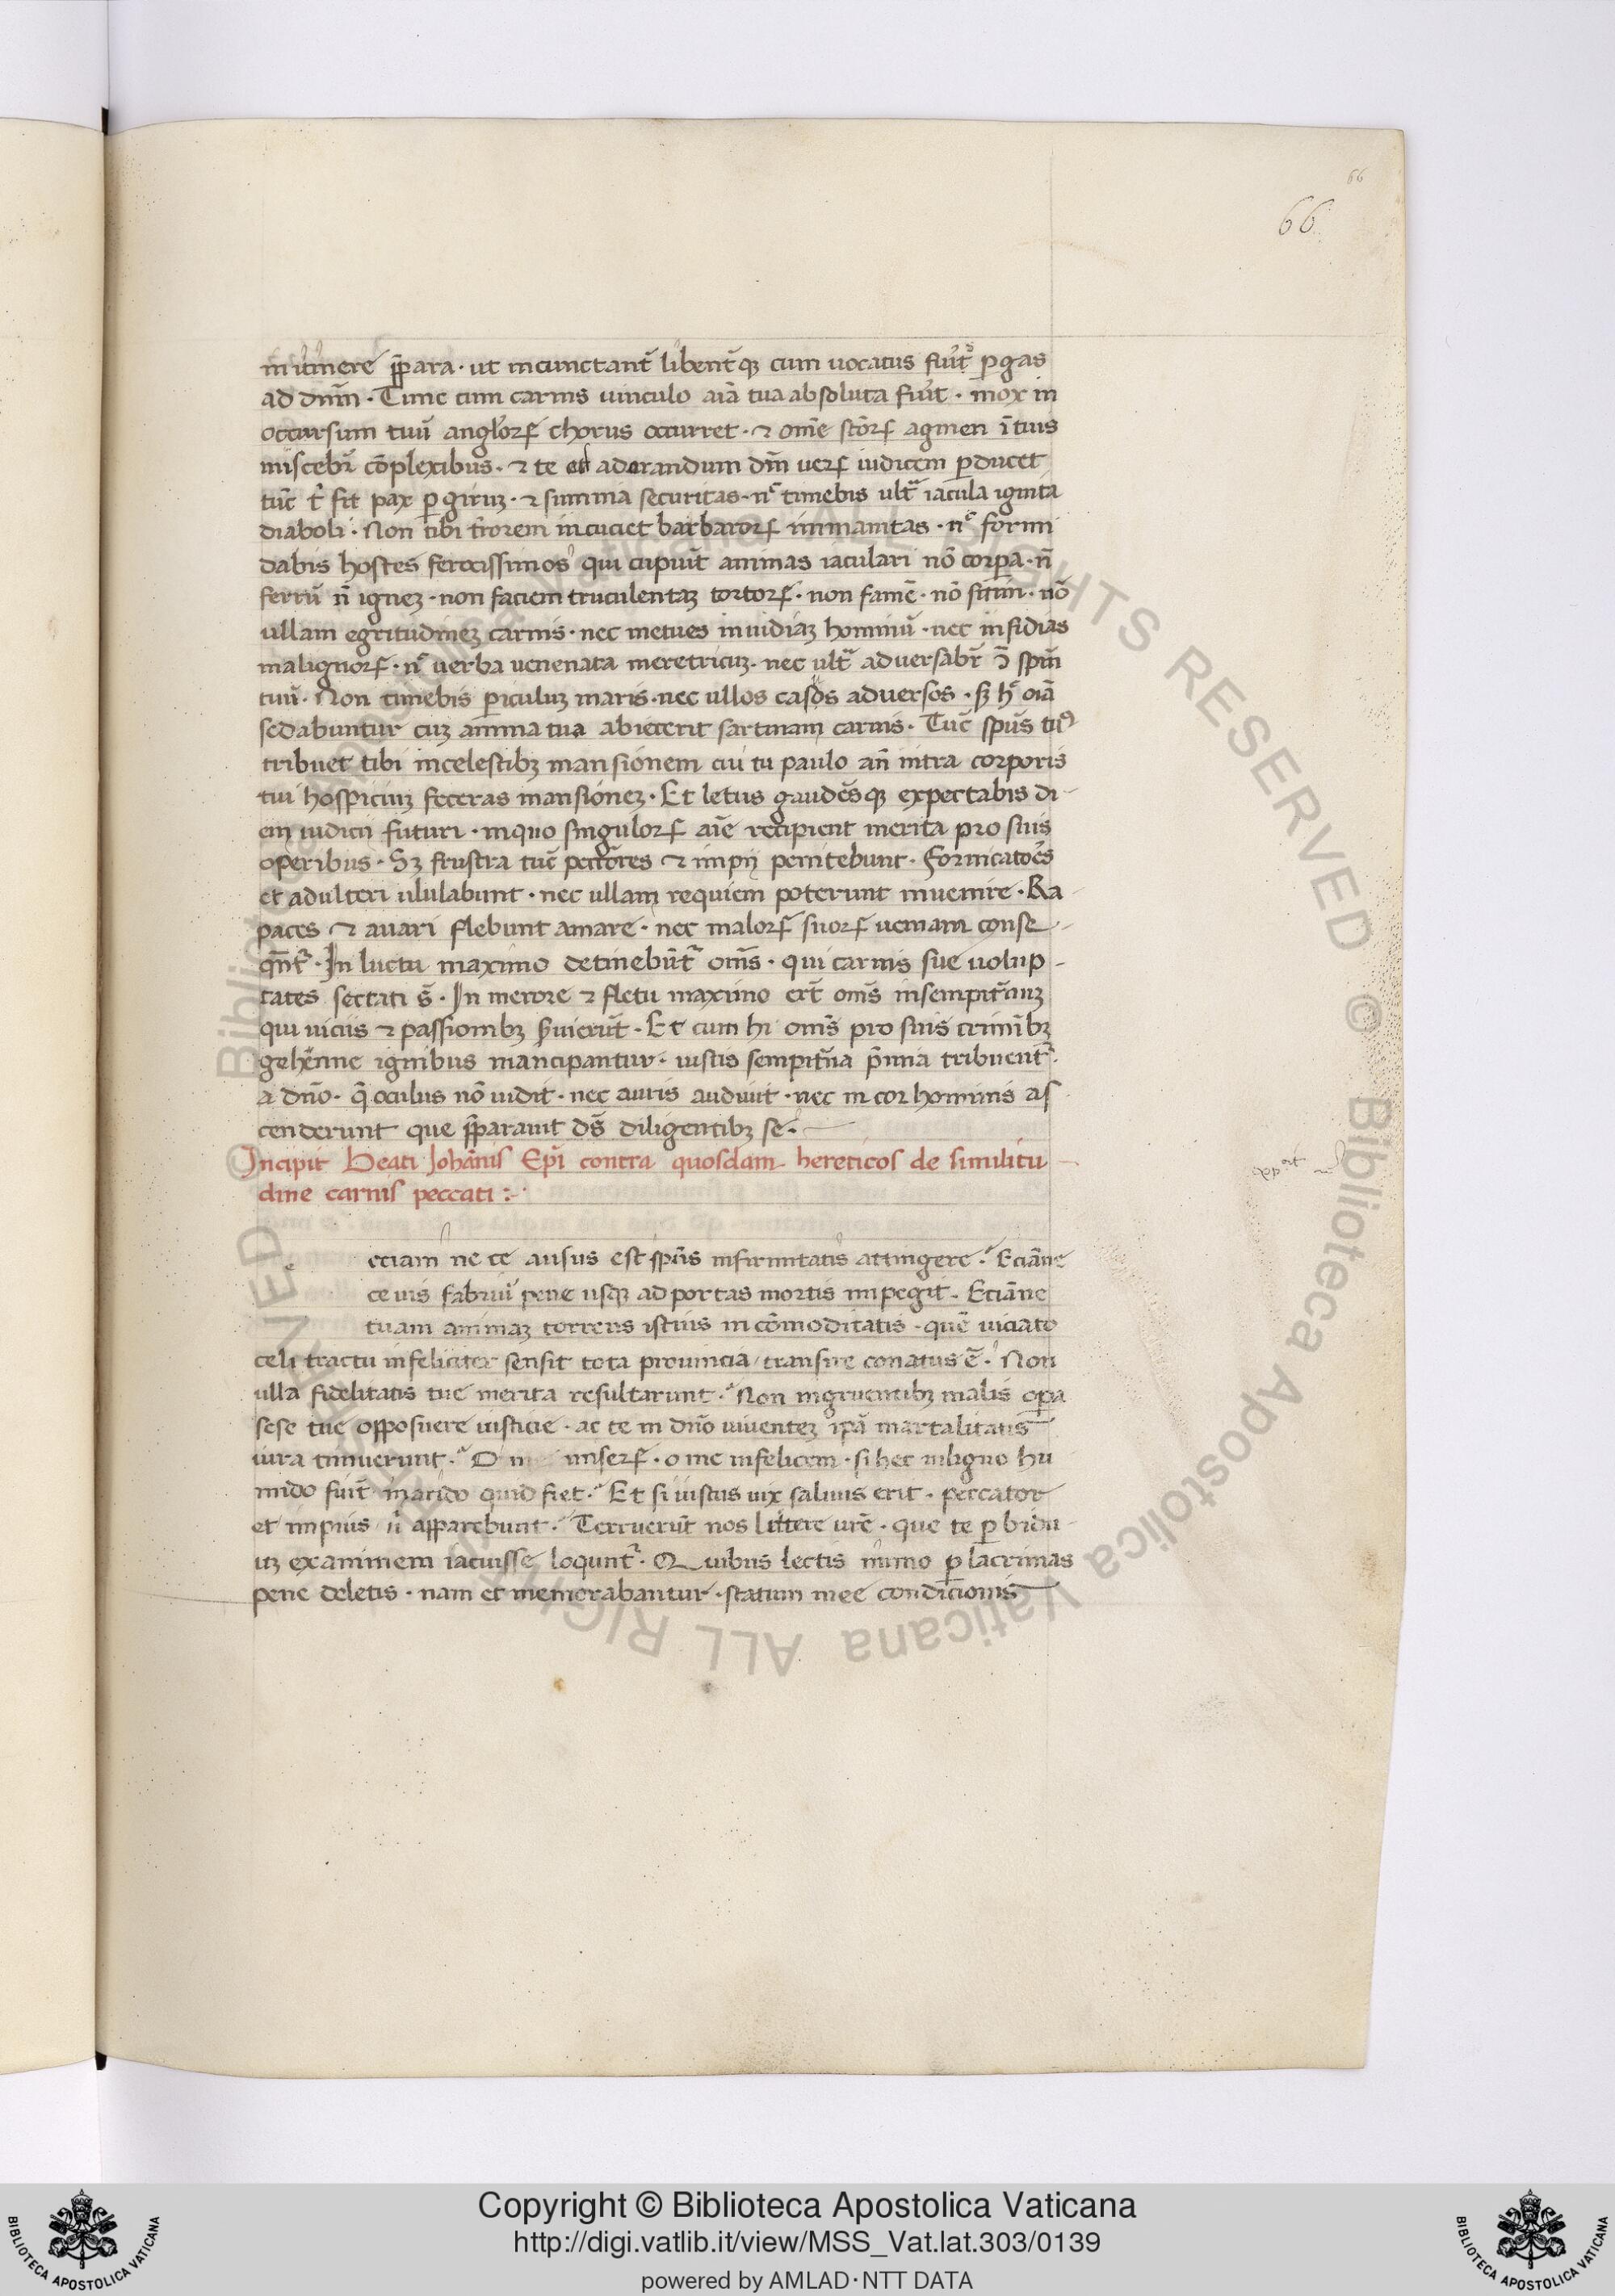 66
66
in itinere p̄para · ut incunctant̄ libent̄qꝫ cum uocatus fuit̄ ꝑgas
ad dnm̄ · Tunc cum carnis uinculo aīa tua absoluta fuīt · mox in
occursum tuū anglōrꝝ chorus occurret · ⁊ omē sc̄torꝝ agmen ī tuis
miscebr̄ cōplexibus · ⁊ te ad adorandum dm̄ uerꝝ iudicem ꝑducet
tūc t̄ sit pax ꝑ giruꝫ · ⁊ summa securitas · nͨ timebis ult̄ iacula ignita
diaboli · Non tibi t̄rorem incuciet barbarorꝝ immanitas · nͨ formi
dabis hostes ferocissimos qui cupiūt animas iaculari nō corꝑa · n̄
ferrū n̄ igneꝫ · non faciem truculentaꝫ tortorꝝ · non famē · nō sitim · nō
ullam egritudineꝫ carnis · nec metues inuidiaꝫ hominū · nec insidias
malignorꝝ · nͨ uerba uenenata meretricuꝫ · nec ult̄ aduersabr̄ ↄ̄ spm̄
tuū · Non timebis ꝑiculuꝫ maris · nec ullos casos aduersos · sꝫ hͨ oīa
sedabuntur cuꝫ anima tua abiecerit sartinam carnis · Tūc spūs tuꝰ
tribuet tibi incelestibꝫ mansionem cui tu paulo an̄ intra corporis
tui hospiciuꝫ feceras mansioneꝫ · Et letus gaudēsqꝫ expectabis di-
em iudicii futuri · inquo singulorꝝ aīe recipient merita pro suis
operibus · Sꝫ frustra tūc peccōres ⁊ impij penitebunt · Fornicatoēs
et adulteri ululabunt · nec ullam requiem poterunt inuenire · Ra-
paces ⁊ auari flebunt amare · nec malorꝝ suorꝝ ueniam conse-
qn̄t̄ · In luctu maximo detinebūt̄ oms̄ · qui carnis sue uolup-
tates sectati s̄ · In merore ⁊ fletu maximo ert̄ oms̄ insempit̄nuꝫ
qui uiciis ⁊ passionibꝫ s̄uierūt · Et cum hi oms̄ pro suis criminībꝫ
gehēnne ignibus mancipantur · iustis sempit̄na p̄mia tribuent̄
a dnō · q̄ oculus nō uidit · nec auris audiuit · nec in cor hominis as
cenderunt que p̄parauit ds̄ diligentibꝫ se ·
Incipit Beati Johānis Ep̄i contra quosdam hereticos de similitu-
dine carnis peccati :·
e eciam ne te ausus est spūs infirmitatis attingere · Eciāne
te uis fabriū pene usqꝫ ad portas mortis impegit · Eciāne
tuam animaꝫ torrens istius incōmoditatis · quē uiciato
celi tractu infeliciter sensit tota prouincia / transire conatus ē · Non
ulla fidelitatis tue merita resultarunt · Non ingruentibꝫ malis oꝑa
sese tue opposuere iusticie · ac te in dnō uiuenteꝫ ip̄a martalitatis
iura timuerunt · O m miserꝝ · o me infelicem · si hec inligno hu
mido fuīt marido quid fiet · Et si iustus uix saluus erit · peccator
et impius ū apparebunt · Terruerūt nos littere urē · que te ꝑ bidu-
uꝫ examinem iacuisse loqunt̄ · Quibus lectis nimo ꝑ lacrimas
pene deletis · nam et memorabantur · statum mee condicionis
Copyright © Biblioteca Apostolica Vaticana
http://digi.vatlib.it/view/MSS_Vat.lat.303/0139
powered by AMLAD·NTT DATA
BIBLIOTECA APOSTOLICA VATICANA
BIBLIOTECA APOSTOLICA VATICANA
© Biblioteca Apostolica Vaticana ALL RIGHTS RESERVED © Biblioteca Apostolica Vaticana ALL RIGHTS RESERVED